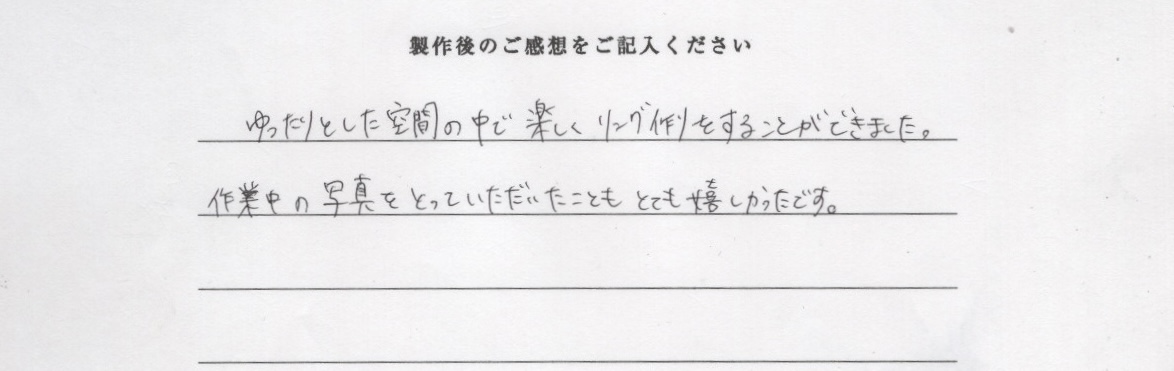 製作後のご感想をご記入ください
ゆったりとした空間の中で楽しくリング作りをすることができました。
作業中の写真をとっていただいたこともとても嬉しかったです。